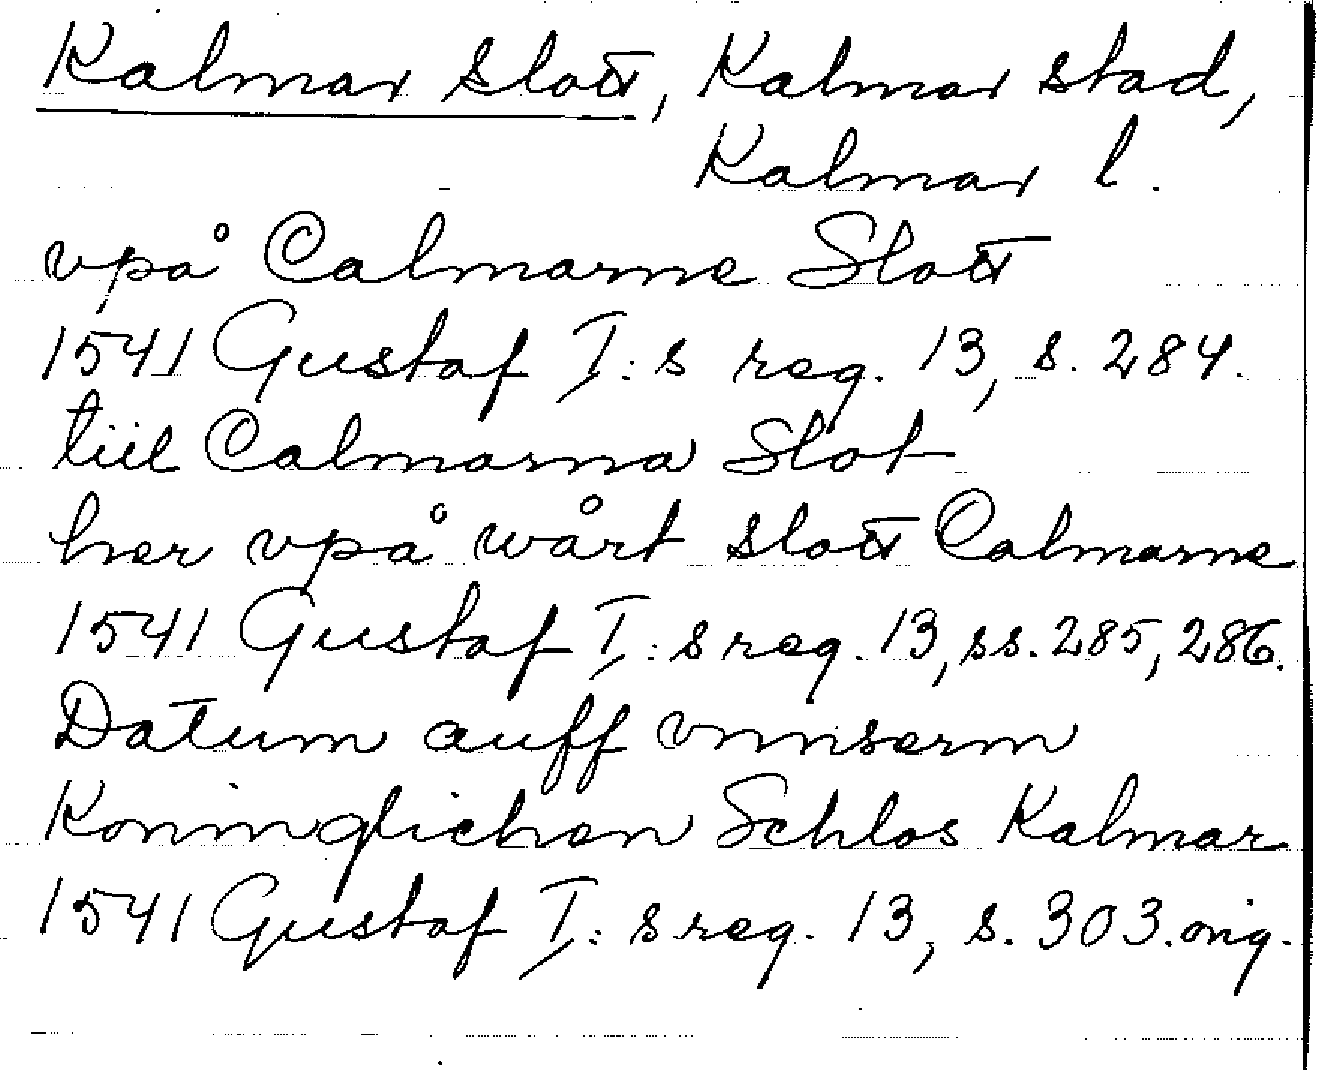 Kalmar slott, Kalmar stad,
Kalmar l.
vpå Calmarne Slott
1541 Gustaf I:s reg. 13, s. 284.
tiil Calmarna Slot
her vpå wårt slott Calmarne
1541 Gustaf I:s reg. 13, ss. 285, 286.
Datum auff vnnserm
Koninglichen Schlos Kalmar
1541 Gustaf I:s reg. 13, s. 303. orig.